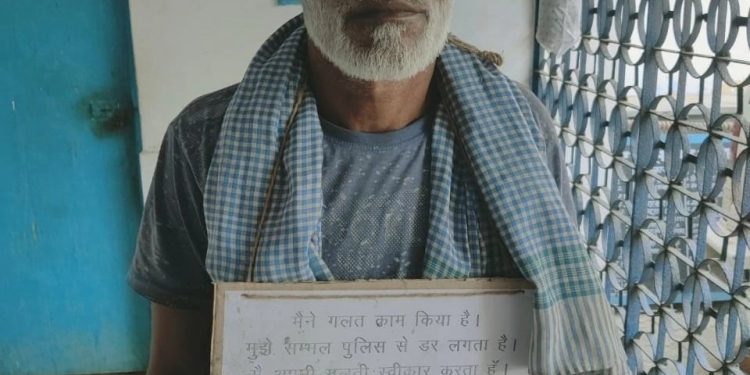 मैने गलत काम किया है।
मुझे सम्भल पुलिस से डर लगता है।
मै अपनी गलती स्वीकार करता हूँ।